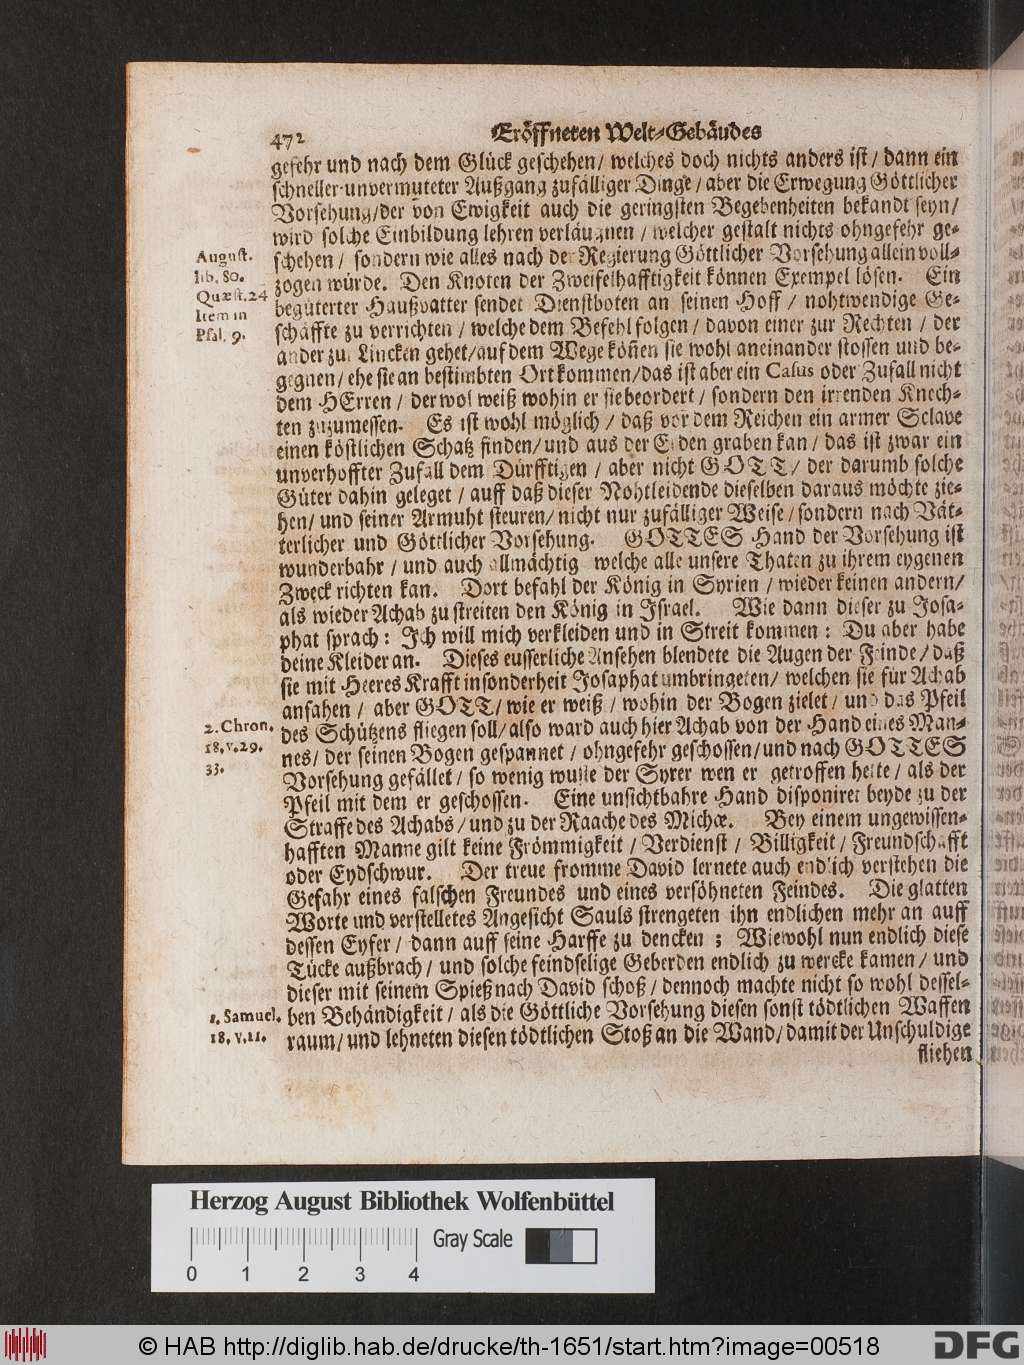 472
Eröffneten Welt-Gebäudes
gefehr und nach dem Glück geschehen/ welches doch nichts anders ist/ dann ein
schneller unvermuteter Außgang zufälliger Dinge/ aber die Erwegung Göttlicher
Vorsehung/der von Ewigkeit auch die geringsten Begebenheiten bekandt seyn/
wird solche Einbildung lehren verläugnen/ welcher gestalt nichts ohngefehr ge-
schehen/ sondern wie alles nach der Regierung Göttlicher Vorsehung allein voll-
zogen würde. Den Knoten der Zweifelhafftigkeit können Exempel lösen. Ein
begüterter Haußvatter sendet Dienstboten an seinen Hoff/ nohtwendige Ge-
schäffte zu verrichten/ welche dem Befehl folgen/ davon einer zur Rechten/ der
ander zur Lincken gehet/auf dem Wege köñen sie wohl aneinander stossen und be-
gegnen/ ehe sie an bestimbten Ort kommen/das ist aber ein Casus oder Zufall nicht
dem HErren/ der wol weiß wohin er sie beordert/ sondern den irrenden Knech-
ten zuzumessen. Es ist wohl möglich/ daß vor dem Reichen ein armer Sclave
einen köstlichen Schatz finden/und aus der Erden graben kan/ das ist zwar ein
unverhoffter Zufall dem Dürfftigen/ aber nicht GOTT/ der darumb solche
Güter dahin geleget/ auff daß dieser Nohtleidende dieselben daraus möchte zie-
hen/ und seiner Armuht steuren/ nicht nur zufälliger Weise/ sondern nach Vät-
terlicher und Göttlicher Vorsehung. GOTTES Hand der Vorsehung ist
wunderbahr/ und auch allmächtig welche alle unsere Thaten zu ihrem eygenen
Zweck richten kan. Dort befahl der König in Syrien/ wieder keinen andern/
als wieder Achab zu streiten den König in Israel. Wie dann dieser zu Josa-
phat sprach: Ich will mich verkleiden und in Streit kommen: Du aber habe
deine Kleider an. Dieses eusserliche Ansehen blendete die Augen der Feinde/ daß
sie mit Heeres Krafft insonderheit Josaphat umbringeten/ welchen sie für Achab
ansahen/ aber GOTT/ wie er weiß/ wohin der Bogen zielet/ und das Pfeil
des Schützens fliegen soll/ also ward auch hier Achab von der Hand eines Man-
nes/ der seinen Bogen gespannet/ ohngefehr geschossen/ und nach GOTTES
Vorsehung gefället/ so wenig wuste der Syrer wen er getroffen hette/ als der
Pfeil mit dem er geschossen. Eine unsichtbahre Hand disponiret beyde zu der
Straffe des Achabs/ und zu der Raache des Michæ. Bey einem ungewissen-
hafften Manne gilt keine Frömmigkeit/ Verdienst/ Billigkeit/ Freundschafft
oder Eydschwur. Der treue fromme David lernete auch endlich verstehen die
Gefahr eines falschen Freundes und eines versöhneten Feindes. Die glatten
Worte und verstelletes Angesicht Sauls strengeten ihn endlichen mehr an auff
dessen Eyfer/ dann auff seine Harffe zu dencken; Wiewohl nun endlich diese
Tücke außbrach/ und solche feindselige Geberden endlich zu wercke kamen/ und
dieser mit seinem Spieß nach David schoß/ dennoch machte nicht so wohl dessel-
ben Behändigkeit/ als die Göttliche Vorsehung diesen sonst tödtlichen Waffen
raum/ und lehneten diesen tödtlichen Stoß an die Wand/ damit der Unschuldige
fliehen
August.
lib. 80.
Quæst. 24
Item in
Psal. 9.
2. Chron.
18. v. 29.
33.
1. Samuel.
18. v. 11.
Herzog August Bibliothek Wolfenbüttel
Gray Scale
0 1 2 3 4
© HAB http://diglib.hab.de/drucke/th-1651/start.htm?image=00518
DFG